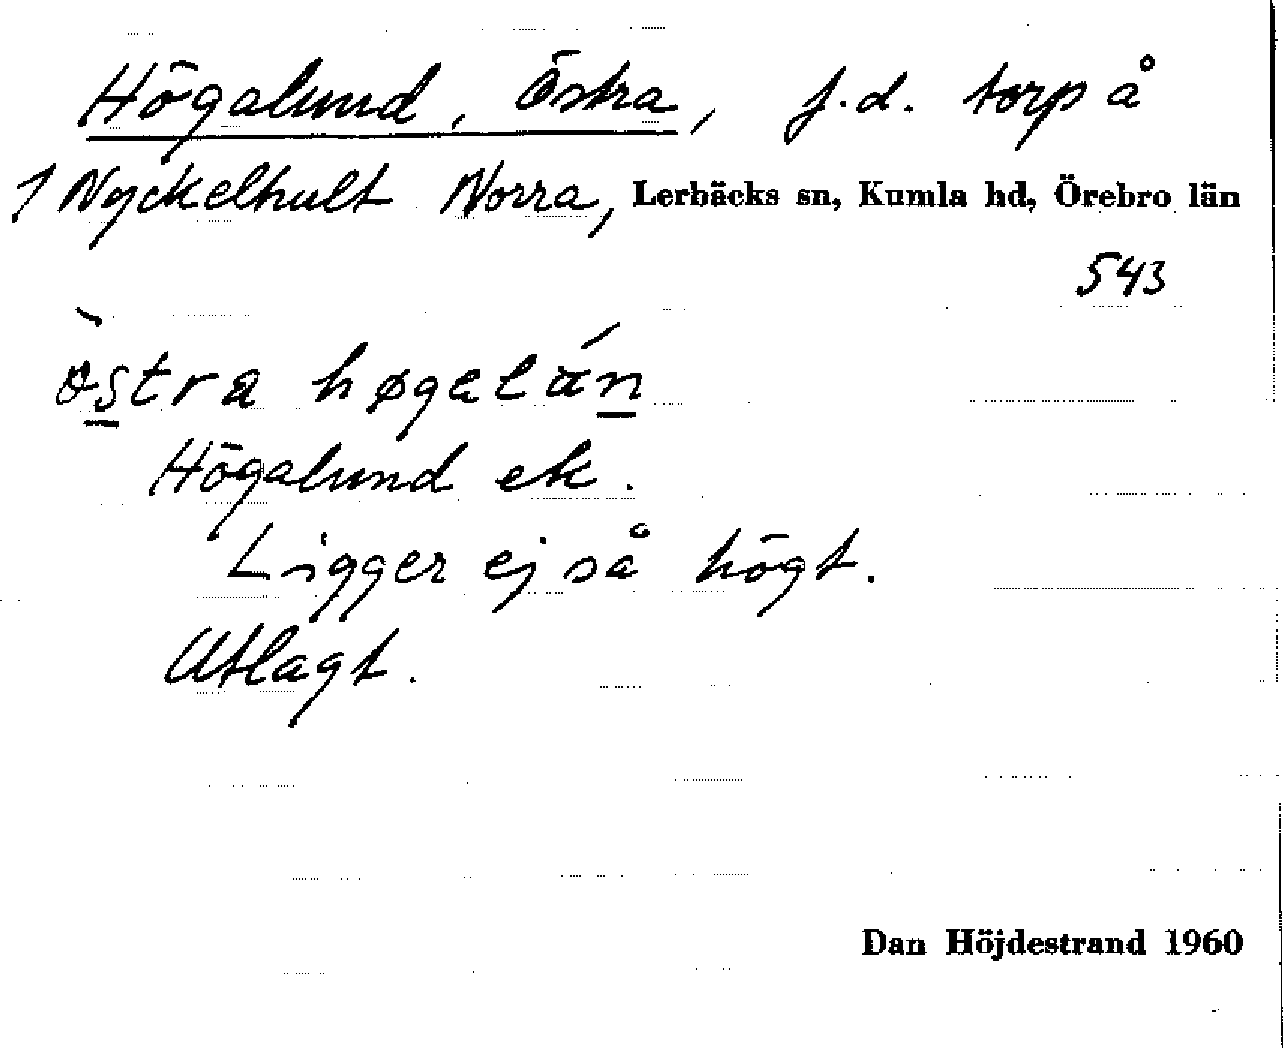 Högalund, Östra, f.d. torp å
1 Nyckelhult Norra, Lerbäcks sn, Kumla hd, Örebro län
543
òstra høgalán
Högalund ek.
Ligger ej så högt.
Utlagt.
Dan Höjdestrand 1960